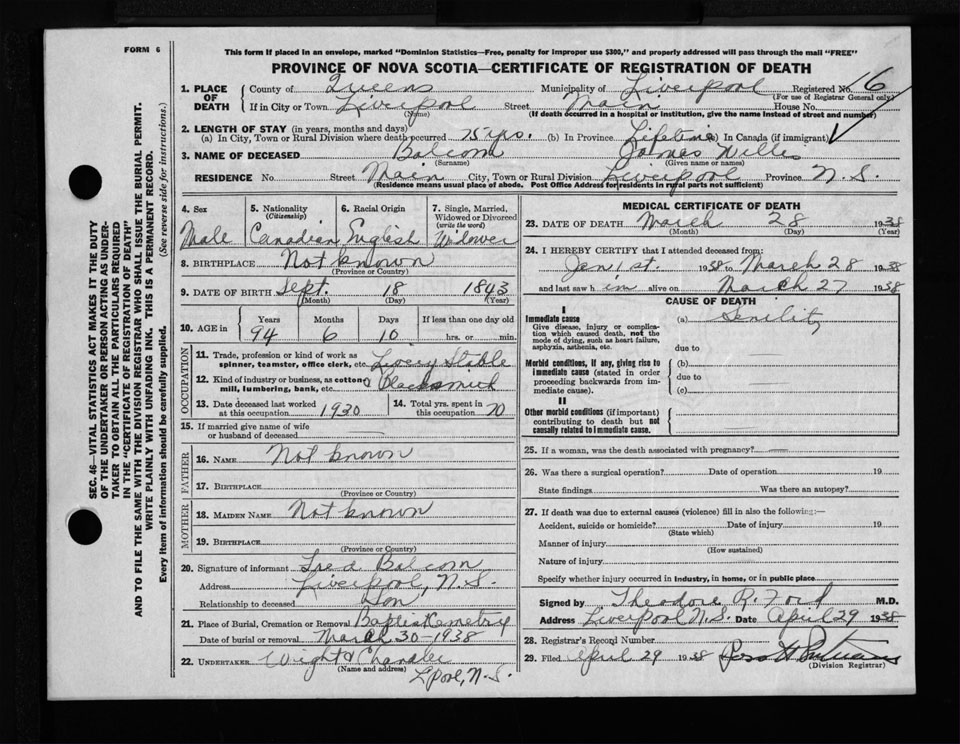 FORM 6
This form if placed in an envelope, marked "Dominion Statistics—Free, penalty for improper use $300," and properly addressed will pass through the mail "FREE"
PROVINCE OF NOVA SCOTIA—CERTIFICATE OF REGISTRATION OF DEATH
1. PLACE OF DEATH County of Queens Municipality of Liverpool Registered No. 16
(For use of Registrar General only)
If in City or Town Liverpool Street Main House No.
(Name) (If death occurred in a hospital or institution, give the name instead of street and number)
2. LENGTH OF STAY (in years, months and days)
(a) In City, Town or Rural Division where death occurred 75 yrs. (b) In Province Lifetime (c) In Canada (if immigrant)
3. NAME OF DECEASED Balcom James Willis
(Surname) (Given name or names)
RESIDENCE No. Street Main City, Town or Rural Division Liverpool Province N.S.
(Residence means usual place of abode. Post Office Address for residents in rural parts not sufficient)
4. Sex 5. Nationality (Citizenship) 6. Racial Origin 7. Single, Married, Widowed or Divorced (write the word)
Male Canadian English Widower
8. BIRTHPLACE Not known
(Province or Country)
9. DATE OF BIRTH Sept. 18 1843
(Month) (Day) (Year)
10. AGE in Years Months Days If less than one day old
94 6 10 hrs. or min.
OCCUPATION
11. Trade, profession or kind of work as spinner, teamster, office clerk, etc. Livery Stable
12. Kind of industry or business, as cotton mill, lumbering, bank, etc. & Blacksmith
13. Date deceased last worked at this occupation 1930 14. Total yrs. spent in this occupation 70
15. If married give name of wife or husband of deceased
FATHER
16. NAME Not known
17. BIRTHPLACE
(Province or Country)
MOTHER
18. MAIDEN NAME Not known
19. BIRTHPLACE
(Province or Country)
20. Signature of informant Fred Balcom
Address Liverpool, N.S.
Relationship to deceased Son
21. Place of Burial, Cremation or Removal Baptist Cemetry
Date of burial or removal March 30-1938
22. UNDERTAKER Wright & Chandler
(Name and address)
L'Pool, N.S.
MEDICAL CERTIFICATE OF DEATH
23. DATE OF DEATH March 28 1938
(Month) (Day) (Year)
24. I HEREBY CERTIFY that I attended deceased from:
Jan 1st. 1938 to March 28 1938
and last saw h im alive on March 27 1938
CAUSE OF DEATH
I
Immediate cause (a) Senility
Give disease, injury or complication which caused death, not the mode of dying, such as heart failure, asphyxia, asthenia, etc.
due to
Morbid conditions, if any, giving rise to immediate cause (stated in order proceeding backwards from immediate cause). (b)
due to
(c)
II
Other morbid conditions (if important) contributing to death but not causally related to immediate cause.
25. If a woman, was the death associated with pregnancy?
26. Was there a surgical operation? Date of operation 19
State findings Was there an autopsy?
27. If death was due to external causes (violence) fill in also the following:—
Accident, suicide or homicide? Date of injury 19
(State which)
Manner of injury
(How sustained)
Nature of injury
Specify whether injury occurred in industry, in home, or in public place
Signed by Theodore R. Ford M.D.
Address Liverpool N.S. Date April 29 1938
28. Registrar's Record Number
29. Filed April 29 1938
(Division Registrar)
SEC. 46—VITAL STATISTICS ACT MAKES IT THE DUTY
OF THE UNDERTAKER OR PERSON ACTING AS UNDER-
TAKER TO OBTAIN ALL THE PARTICULARS REQUIRED
IN THE "CERTIFICATE OF REGISTRATION OF DEATH"
AND TO FILE THE SAME WITH THE DIVISION REGISTRAR WHO SHALL ISSUE THE BURIAL PERMIT.
WRITE PLAINLY WITH UNFADING INK. THIS IS A PERMANENT RECORD.
Every item of information should be carefully supplied. (See reverse side for instructions.)